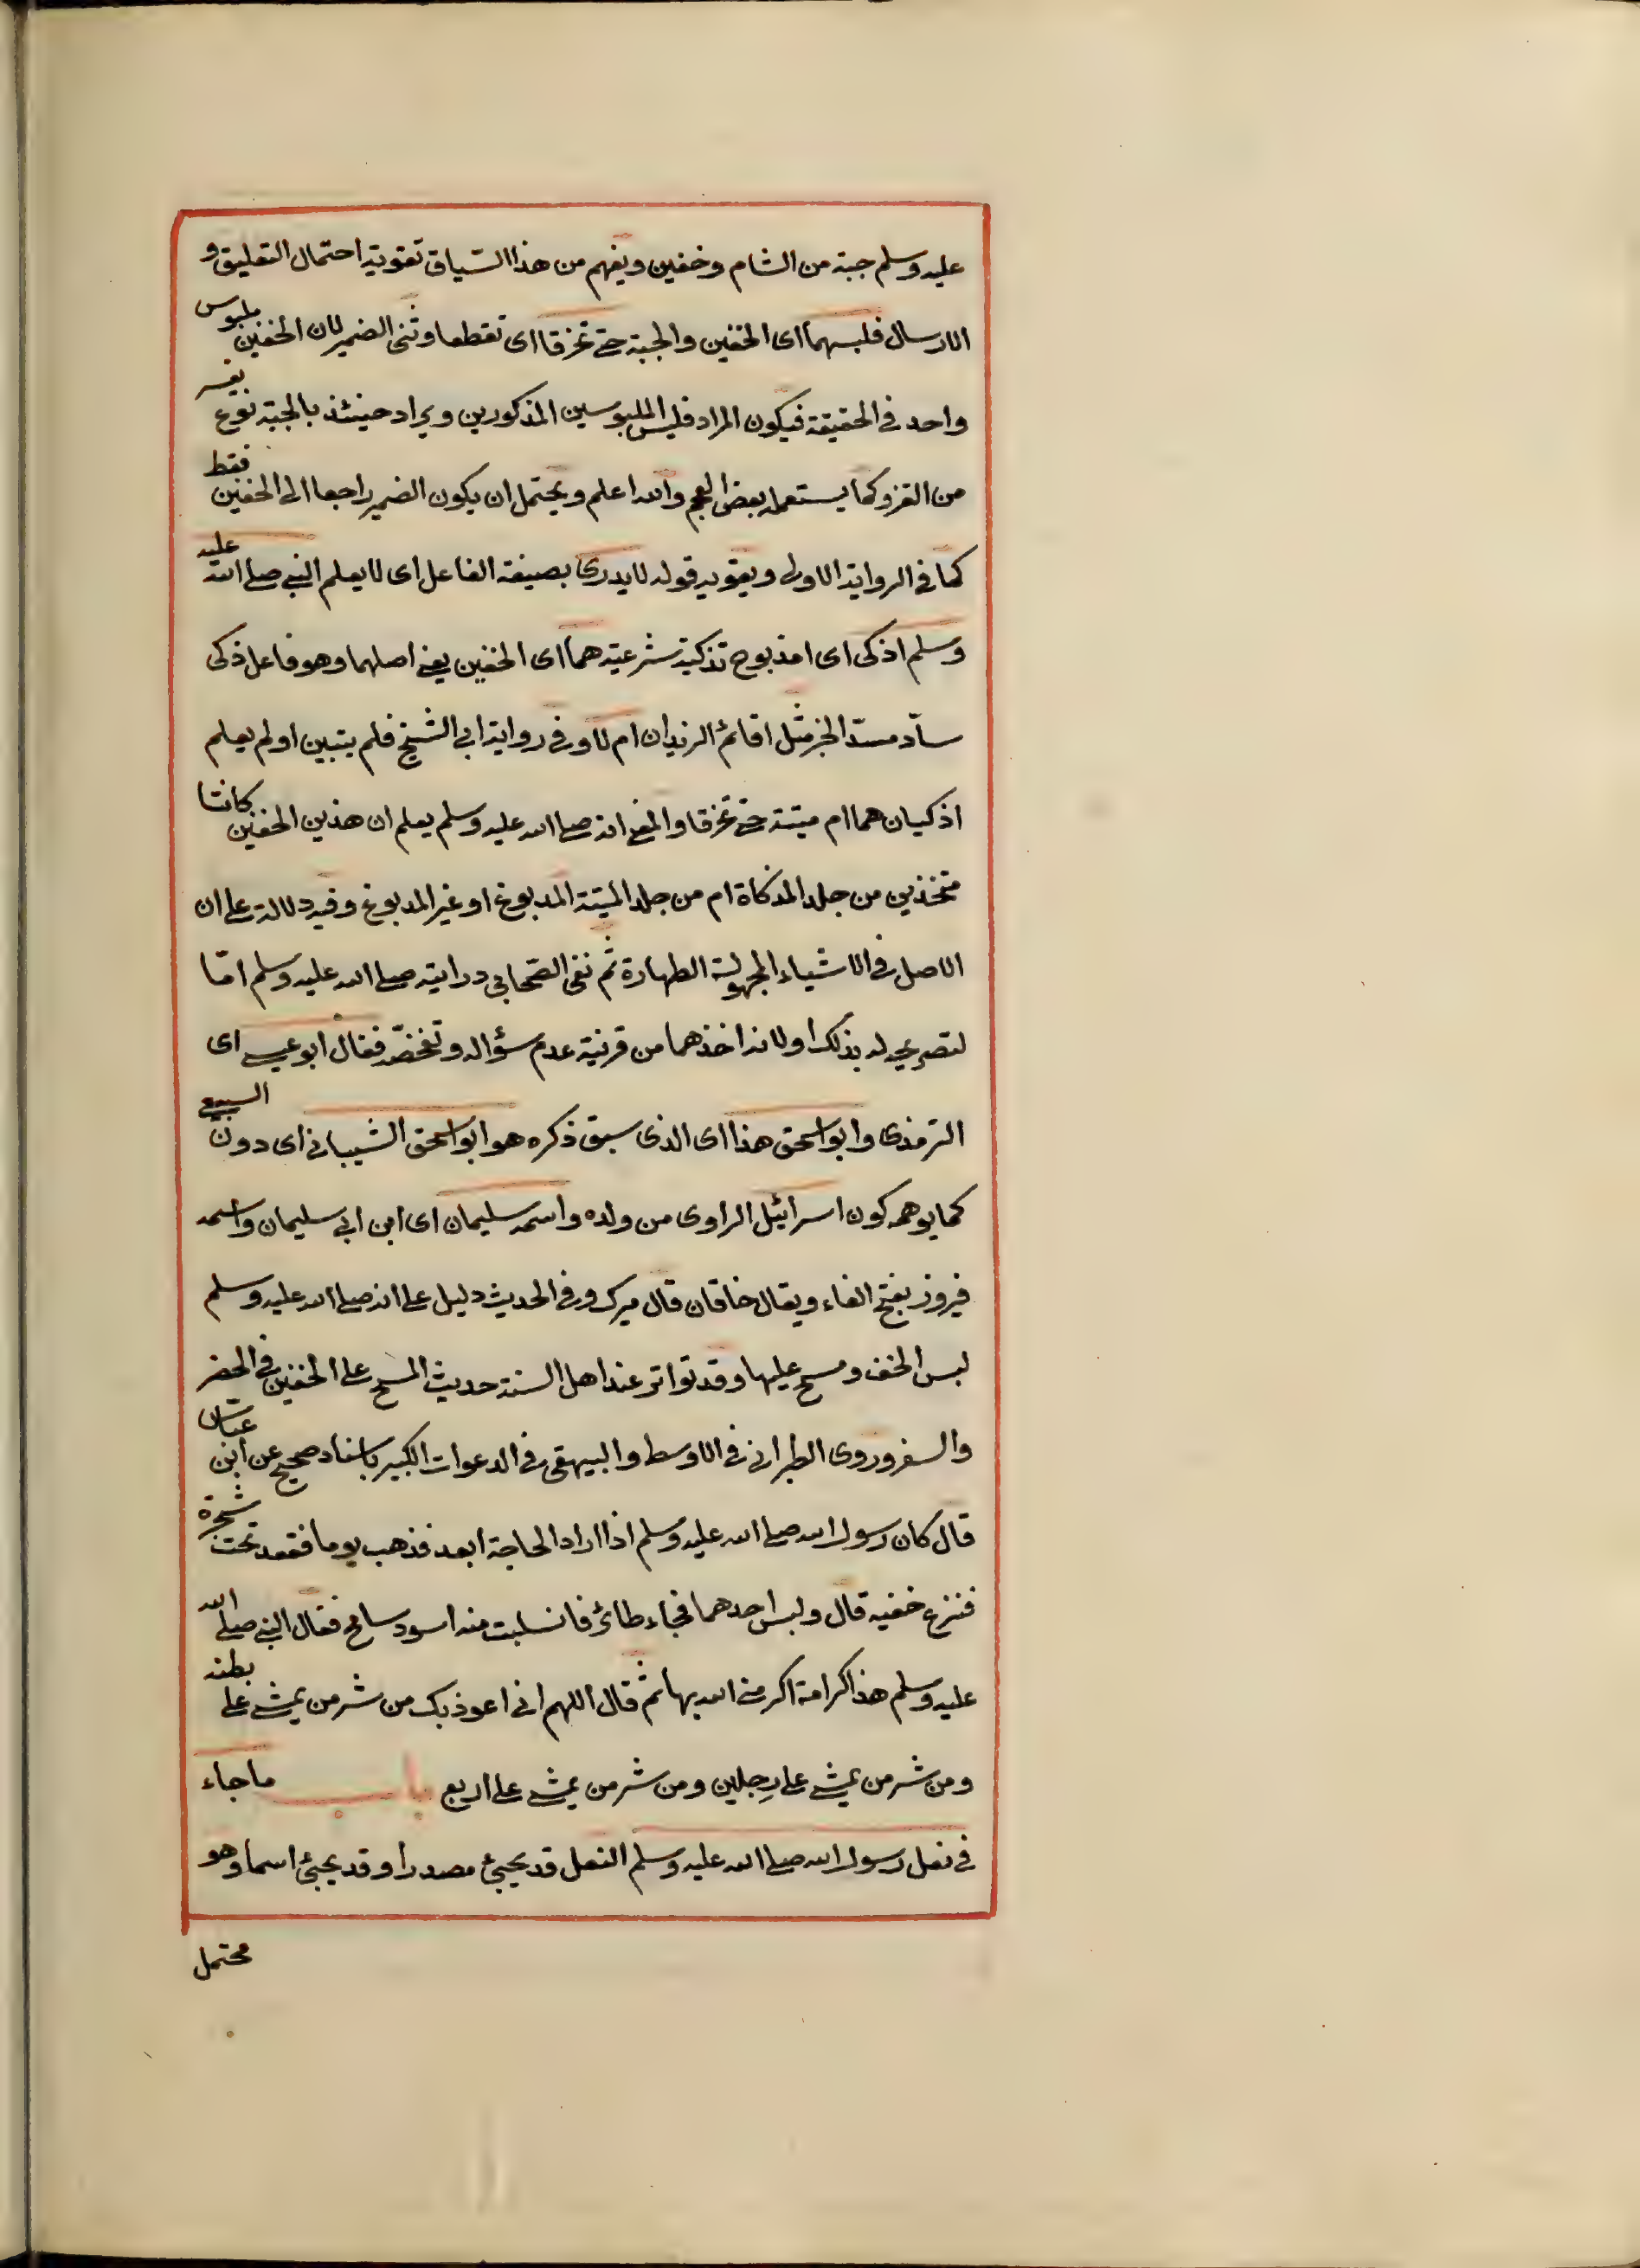 عليه وسلم جبة من الشام وخفين ويفهم من هذا السّياق تقوية احتمال التعليق و
الارسال فلبسهما اى الخفين والجبة حتى تخرقا اى تقطعا وثنى الضمير لان الخفين ملبوس
واحد فى الحقيقة فيكون المراد فلبس الملبوسين المذكورين ويراد حينئذ بالجبة نوع نفيس
من الفرو كما يستعمله بعض العجم والله اعلم ويحتمل ان يكون الضمير راجعا الى الخفين فقط
كما فى الرواية الاولى ويقويه قوله لا يدرى بصيغة الفاعل اى لا يعلم النبى صلى الله عليه
وسلم اذكى اى امذبوح تذكية شرعية هما اى الخفين يعنى اصلهما وهو فاعل ذكى
سادّ مسدّ الخبر مثل اقائم الزيدان ام لا وفى رواية ابى الشيخ فلم يتبين او لم يعلم
اذكيان هما ام ميتة حتى تخرقا والمعنى انه صلى الله عليه وسلم يعلم ان هذين الخفين كانتا
متخذين من جلد المذكاة ام من جلد الميتة المدبوغ او غير المدبوغ وفيه دلالة على ان
الاصل فى الاشياء المجهولة الطهارة ثم نفى الصّحابى درايته صلى الله عليه وسلم امّا
لتصريحه له بذلك او لانه اخذهما من قرنية عدم سؤاله وتفحّصه فقال ابو عيسى اى
الترمذى وابو اسحق هذا اى الذى سبق ذكره هو ابو اسحق الشيبانى اى دون السبيعى
كما يوهمه كون اسرائيل الراوى من ولده واسمه سليمان اى ابن ابى سليمان واسمه
فيروز بفتح الفاء ويقال خاقان قال ميرك وفى الحديث دليل على انه صلى الله عليه وسلم
لبس الخف ومسح عليها وقد تواتر عند اهل السنة حديث المسح على الخفين فى الحضر
والسفر وروى الطبرانى فى الاوسط والبيهقى فى الدعوات الكبير باسناد صحيح عن ابن عبّاس
قال كان رسول الله صلى الله عليه وسلم اذا اراد الحاجة ابعد فذهب يوما فقعد تحت شجرة
فنزع خفيه قال ولبس احدهما فجاء طائر فانسلبت منه اسود سالح فقال النبى صلى الله
عليه وسلم هذا كرامة اكرمنى الله بها ثم قال اللهم انى اعوذ بك من شر من يمشى على بطنه
ومن شر من يمشى على رجلين ومن شر من يمشى على اربع باب ما جاء
فى نعل رسول الله صلى الله عليه وسلم النعل قد يجئ مصدرا وقد يجئ اسما وهو
محتمل